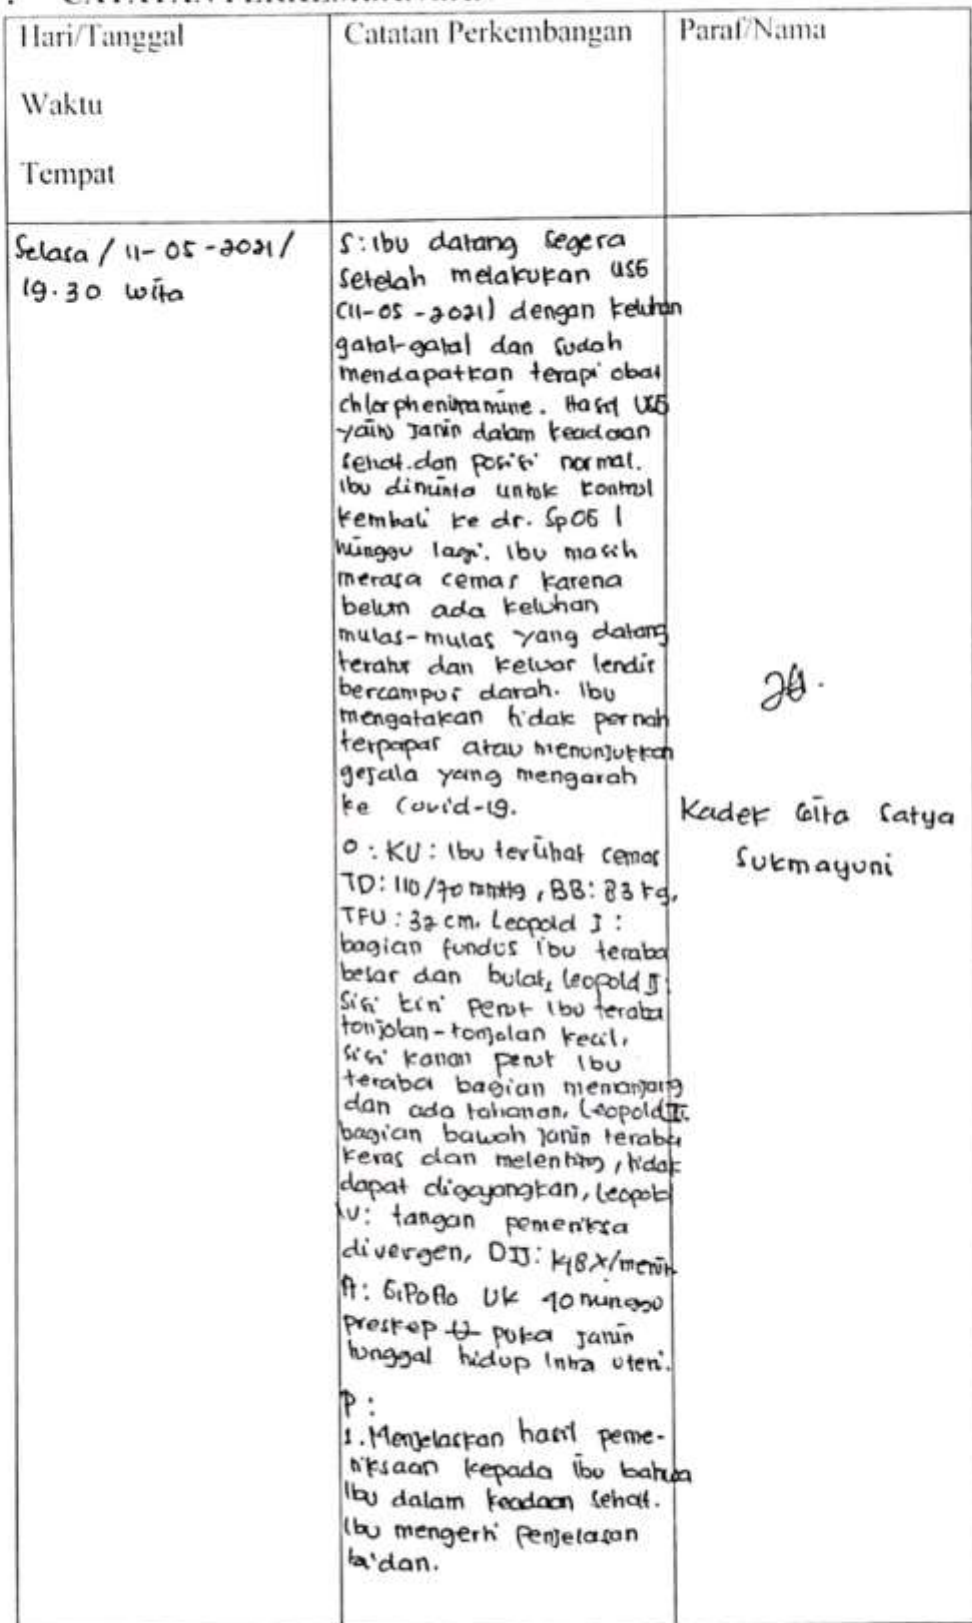 Hari/Tanggal
Waktu
Tempat
Catatan Perkembangan
Paraf/Nama
Selasa / 11-05-2021/
19.30 wita
S: Ibu datang segera
setelah melakukan USG
(11-05-2021) dengan keluhan
gatal-gatal dan sudah
mendapatkan terapi obat
chlorpheniramine. Hasil USG
yaitu janin dalam keadaan
sehat dan posisi normal.
Ibu diminta untuk kontrol
kembali ke dr. SpOG 1
minggu lagi. Ibu masih
merasa cemas karena
belum ada keluhan
mulas-mulas yang datang
teratur dan keluar lendir
bercampur darah. Ibu
mengatakan tidak pernah
terpapar atau menunjukkan
gejala yang mengarah
ke Covid-19.
O: KU: Ibu terlihat cemas
TD: 110/70 mmHg, BB: 83 kg,
TFU: 32 cm, Leopold I:
bagian fundus ibu teraba
besar dan bulat, Leopold II:
sisi kiri perut ibu teraba
tonjolan-tonjolan kecil,
sisi kanan perut ibu
teraba bagian memanjang
dan ada tahanan, Leopold III:
bagian bawah janin teraba
keras dan melenting, tidak
dapat digoyangkan, Leopold
IV: tangan pemeriksa
divergen, DJJ: 148 x/menit
A: G1P0A0 UK 40 minggu
preskep U puka janin
tunggal hidup intra uteri.
P:
1. Menjelaskan hasil peme-
riksaan kepada ibu bahwa
ibu dalam keadaan sehat.
Ibu mengerti penjelasan
bidan.
Kadek Gita Satya
Sukmayuni